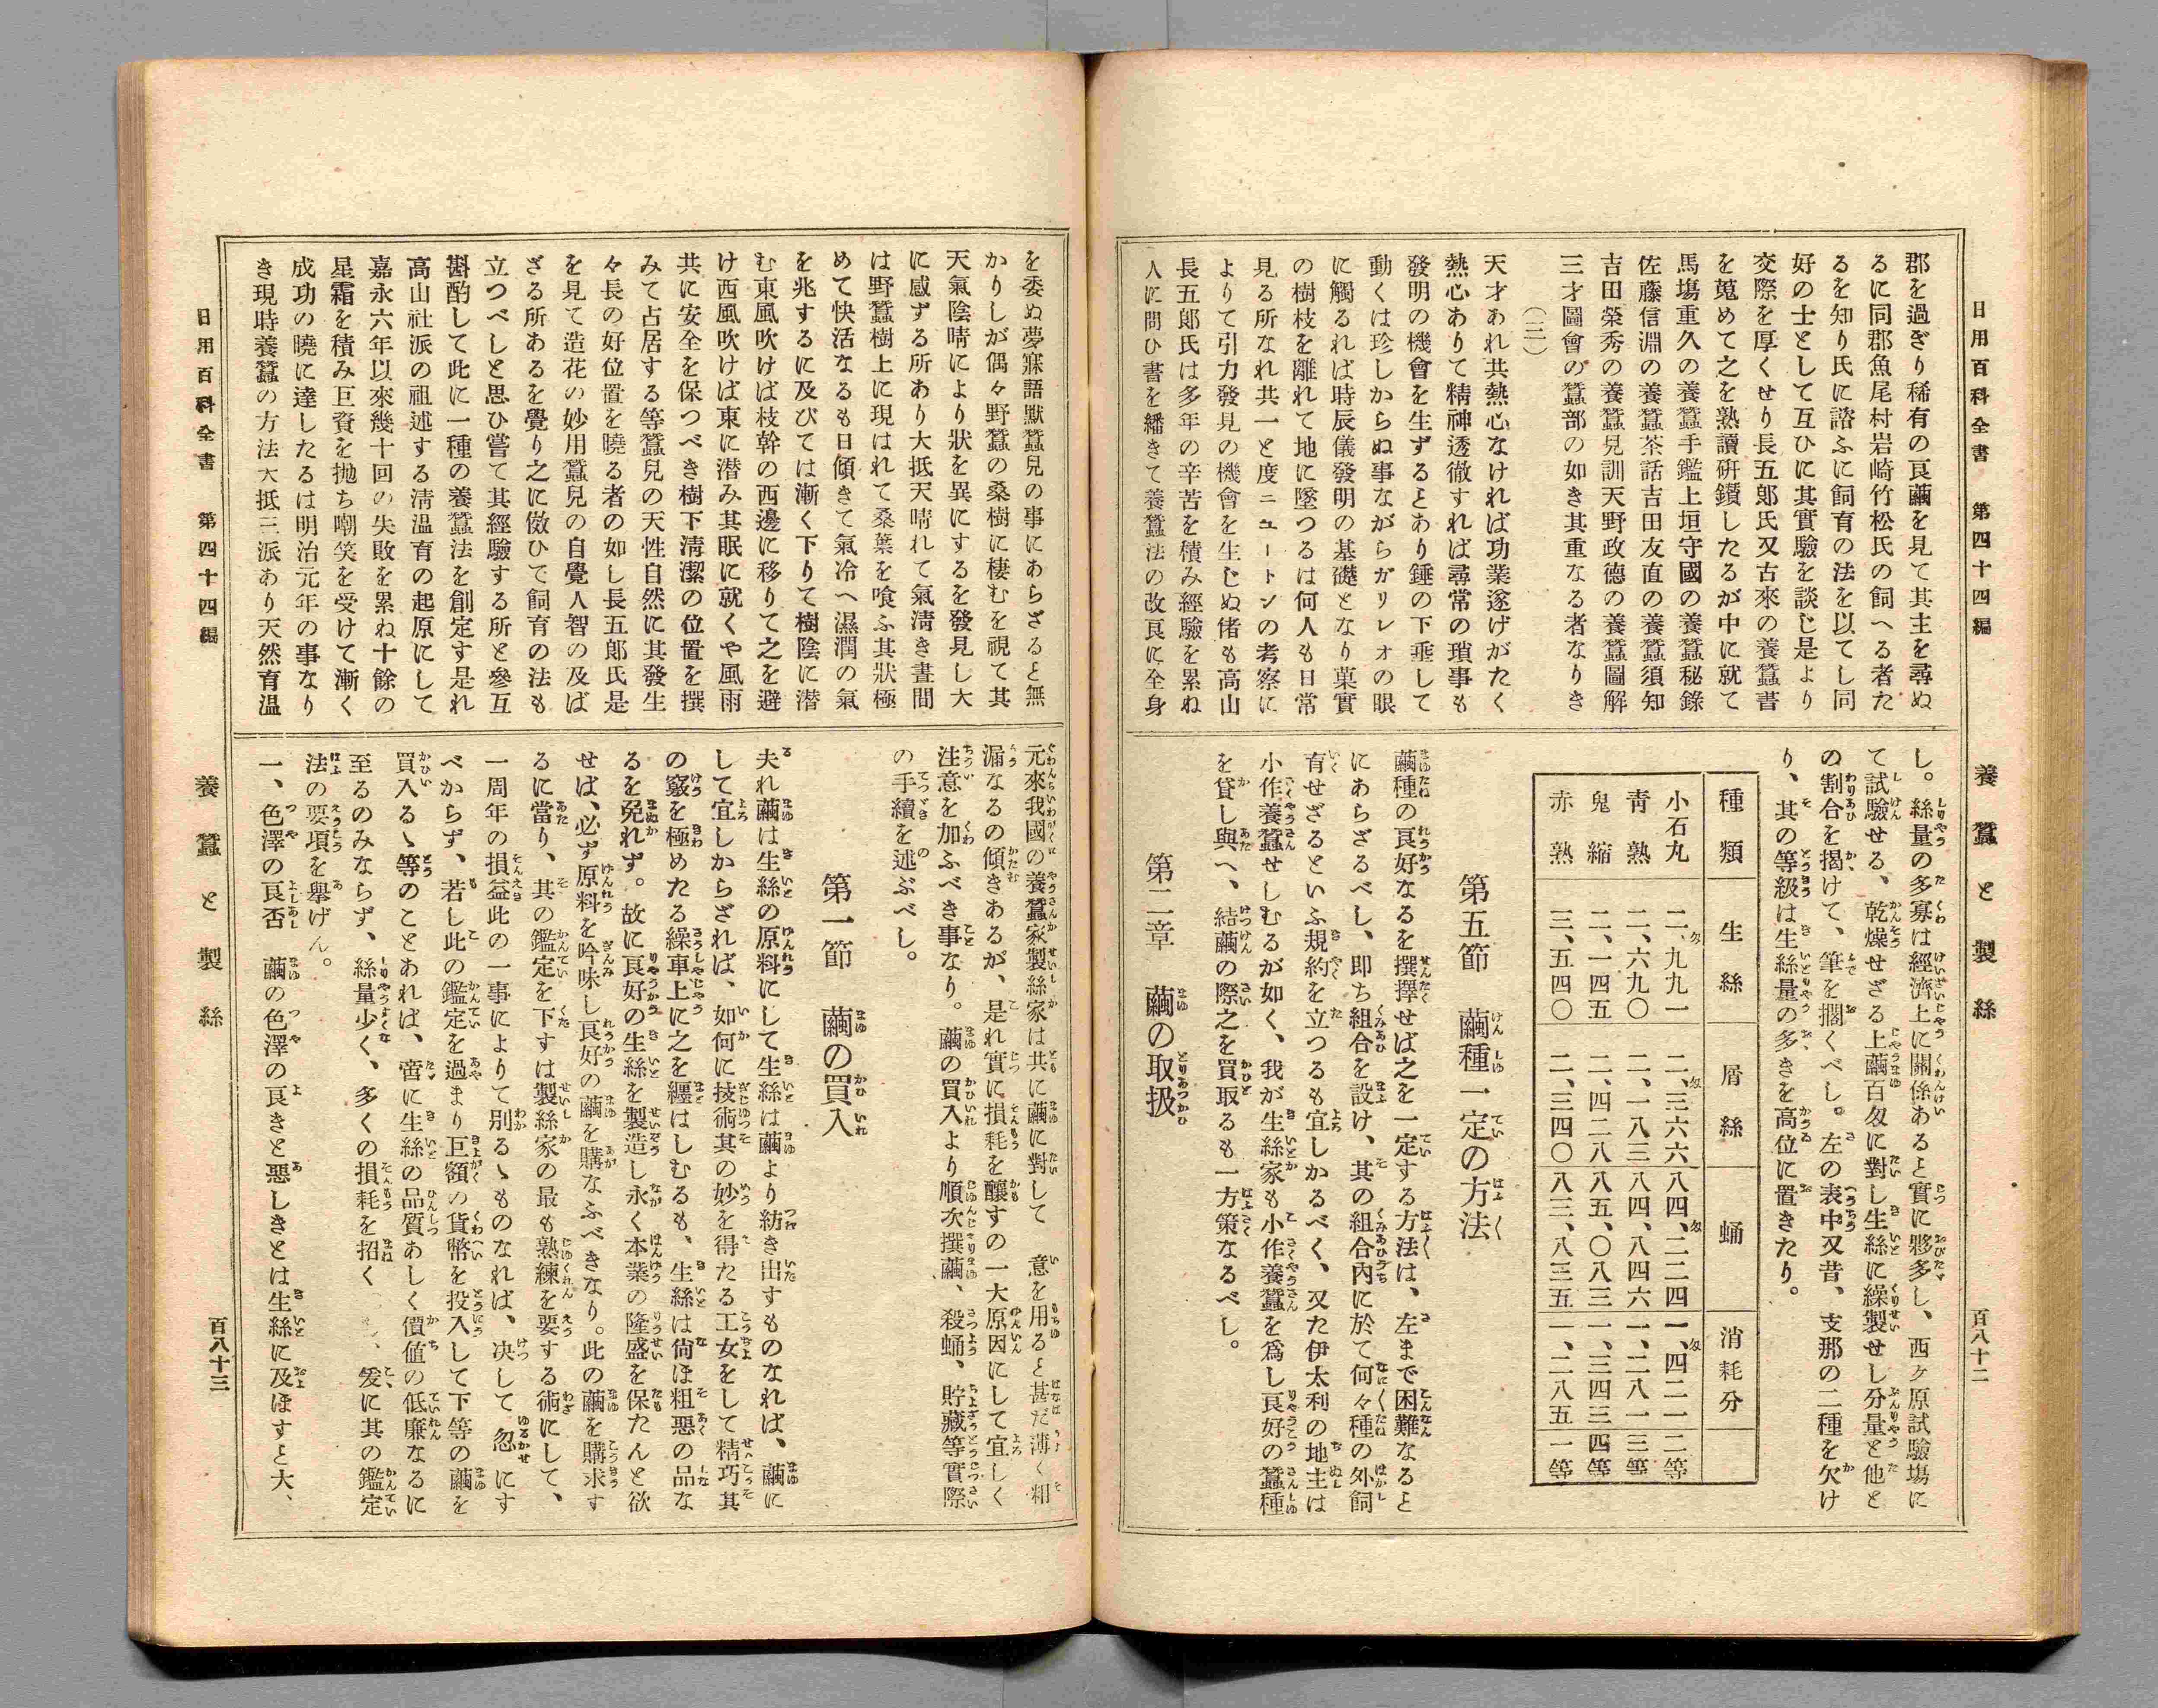 日用百科全書　第四十四編　養蠶と製絲　百八十二
郡を過ぎり稀有の良繭を見て其主を尋ぬ
るに同郡魚尾村岩崎竹松氏の飼へる者た
るを知り氏に諮ふに飼育の法を以てし同
好の士として互ひに其實驗を談じ是より
交際を厚くせり長五郎氏又古來の養蠶書
を蒐めて之を熟讀研鑽したるが中に就て
馬塲重久の養蠶手鑑上垣守國の養蠶秘錄
佐藤信淵の養蠶茶話吉田友直の養蠶須知
吉田榮秀の養蠶兒訓天野政德の養蠶圖解
三才圖會の蠶部の如き其重なる者なりき
（二）
天才あれ共熱心なければ功業遂げがたく
熱心ありて精神透徹すれば尋常の瑣事も
發明の機會を生ずるとあり錘の下垂して
動くは珍しからぬ事ながらガリレオの眼
に觸るれば時辰儀發明の基礎となり菓實
の樹枝を離れて地に墜つるは何人も日常
見る所なれ共一と度ニュートンの考察に
よりて引力發見の機會を生じぬ偖も高山
長五郎氏は多年の辛苦を積み經驗を累ね
人に問ひ書を繙きて養蠶法の改良に全身
し。絲量の多寡は經濟上に關係あると實に夥多し、西ヶ原試驗塲に
て試驗せる、乾燥せざる上繭百匁に對し生絲に繰製せし分量と他と
の割合を揭けて、筆を擱くべし。左の表中又昔、支那の二種を欠け
り、其の等級は生絲量の多きを高位に置きたり。
種類　生絲　屑絲　蛹　消耗分
小石丸　二、九九一　二、三六六　八四、二二四　一、四二一　二等
靑熟　二、六九〇　二、一八三　八四、八四六　一、二八一　三等
鬼縮　二、一四五　二、四二八　八五、〇八三　一、三四三　四等
赤熟　三、五四〇　二、三四〇　八三、八三五　一、二八五　一等
第五節　繭種一定の方法
繭種の良好なるを撰擇せば之を一定する方法は、左まで困難なると
にあらざるべし、即ち組合を設け、其の組合內に於て何々種の外飼
育せざるといふ規約を立つるも宜しかるべく、又た伊太利の地主は
小作養蠶せしむるが如く、我が生絲家も小作養蠶を爲し良好の蠶種
を貸し與へ、結繭の際之を買取るも一方策なるべし。
第二章　繭の取扱
を委ぬ夢寐語默蠶兒の事にあらざると無
かりしが偶々野蠶の桑樹に棲むを視て其
天氣陰晴により狀を異にするを發見し大
に感ずる所あり大抵天晴れて氣淸き晝間
は野蠶樹上に現はれて桑葉を喰ふ其狀極
めて快活なるも日傾きて氣冷へ濕潤の氣
を兆するに及びては漸く下りて樹陰に潛
む東風吹けば枝幹の西邊に移りて之を避
け西風吹けば東に潜み其眠に就くや風雨
共に安全を保つべき樹下淸潔の位置を撰
みて占居する等蠶兒の天性自然に其發生
々長の好位置を曉る者の如し長五郎氏是
を見て造花の妙用蠶兒の自覺人智の及ば
ざる所あるを覺り之に倣ひて飼育の法も
立つべしと思ひ嘗て其經驗する所と參互
斟酌して此に一種の養蠶法を創定す是れ
高山社派の祖述する淸溫育の起原にして
嘉永六年以來幾十回の失敗を累ね十餘の
星霜を積み巨資を抛ち嘲笑を受けて漸く
成功の曉に達したるは明治元年の事なり
き現時養蠶の方法大抵三派あり天然育溫
元來我國の養蠶家製絲家は共に繭に對して　意を用ると甚だ薄く粗
漏なるの傾きあるが、是れ實に損耗を釀すの一大原因にして宜しく
注意を加ふべき事なり。繭の買入より順次撰繭、殺蛹、貯藏等實際
の手續を述ぶべし。
第一節　繭の買入
夫れ繭は生絲の原料にして生絲は繭より紡き出すものなれば、繭に
して宜しからざれば、如何に技術其の妙を得たる工女をして精巧其
の竅を極めたる繰車上に之を纒はしむるも、生絲は尙ほ粗惡の品な
るを免れず。故に良好の生絲を製造し永く本業の隆盛を保たんと欲
せば、必ず原料を吟味し良好の繭を購なふべきなり。此の繭を購求す
るに當り、其の鑑定を下すは製絲家の最も熟練を要する術にして、
一周年の損益此の一事によりて別るゝものなれば、決して忽にす
べからず、若し此の鑑定を過まり巨額の貨幣を投入して下等の繭を
買入るゝ等のことあれば、啻に生絲の品質あしく價値の低廉なるに
至るのみならず、絲量少く、多くの損耗を招く　爰に其の鑑定
法の要項を擧げん。
一、色澤の良否　繭の色澤の良きと惡しきとは生絲に及ほすと大、
日用百科全書　第四十四編　養蠶と製絲　百八十三